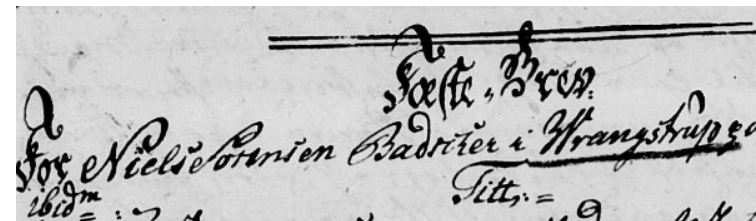 Fæste-Brev.
For Niels Sörensen Badstuer i Wrangstrup
ibid<sup>m</sup>
Titt:=